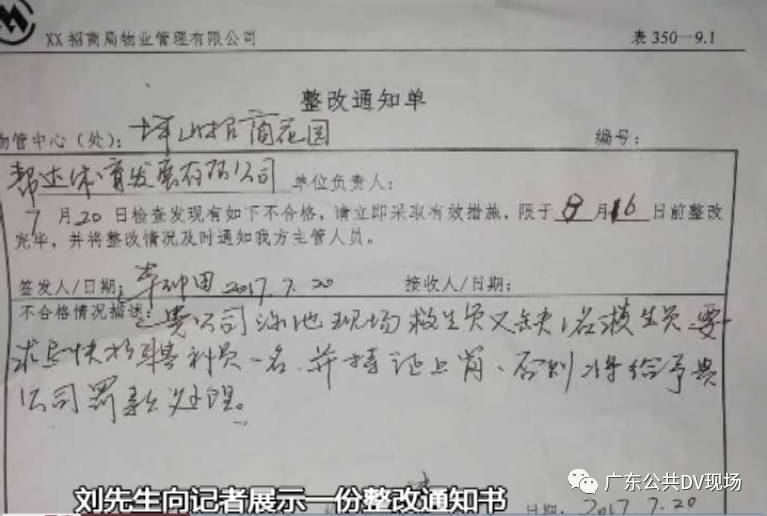 XX招商局物业管理有限公司 表350—9.1
整改通知单
物管中心(处): 坪山招商花园 编号:
邦达体育发展有限公司 单位负责人:
7月20日检查发现有如下不合格,请立即采取有效措施,限于8月16日前整改
完毕,并将整改情况及时通知我方主管人员。
签发人/日期: 李 田 2017.7.20 接收人/日期:
不合格情况描述: 贵公司泳池现场救生员又缺1名救生员要
求尽快招聘 员一名,并持证上岗,否则将给予贵
公司罚款处理。
刘先生向记者展示一份整改通知书
广东公共DV现场
日期: 2017 7.20